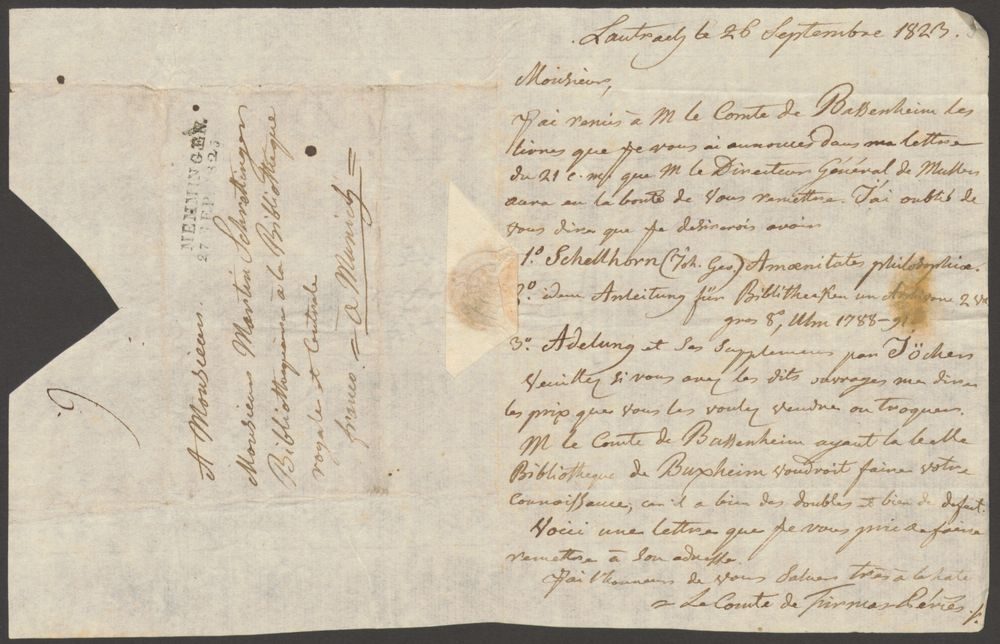 Lautrach le 26 Septembre 1823.
Monsieur,
J'ai remis à M le Comte de Bassenheim les
livres que je vous ai annoncés dans ma lettre
du 21 c. m. que M le Directeur Général de
aura eu la bonté de vous remettre. J'ai oublié de
vous dire que je desirerois avoir
1.º Schellhorn (Joh. Geo.) Amœnitates philosophiæ.
2.º idem Anleitung für Bibliothecken un Archivare 2 
gros 8.º Ulm 1788-91.
3.º Adelung et ses supplemens par Jöcher
Veuillez si vous avez les dits ouvrages me dire
les prix que vous les voulez vendre ou troquer.
M le Comte de Bassenheim ayant la belle
Bibliotheque de Buxheim voudroit faire votre
connoissance, car il a bien des doubles et bien de defect.
Voici une lettre que je vous prie de faire
remettre à son adresse.
J'ai l'honneur de vous saluer très à la hate
Le Comte de Firmas Périés.
MEMMINGEN.
27 SEP 1823
A Monsieur
Monsieur Martin Schrettinger
Bibliothequaire a la Bibliotheque
royale et Centrale
franco. = a Munich =